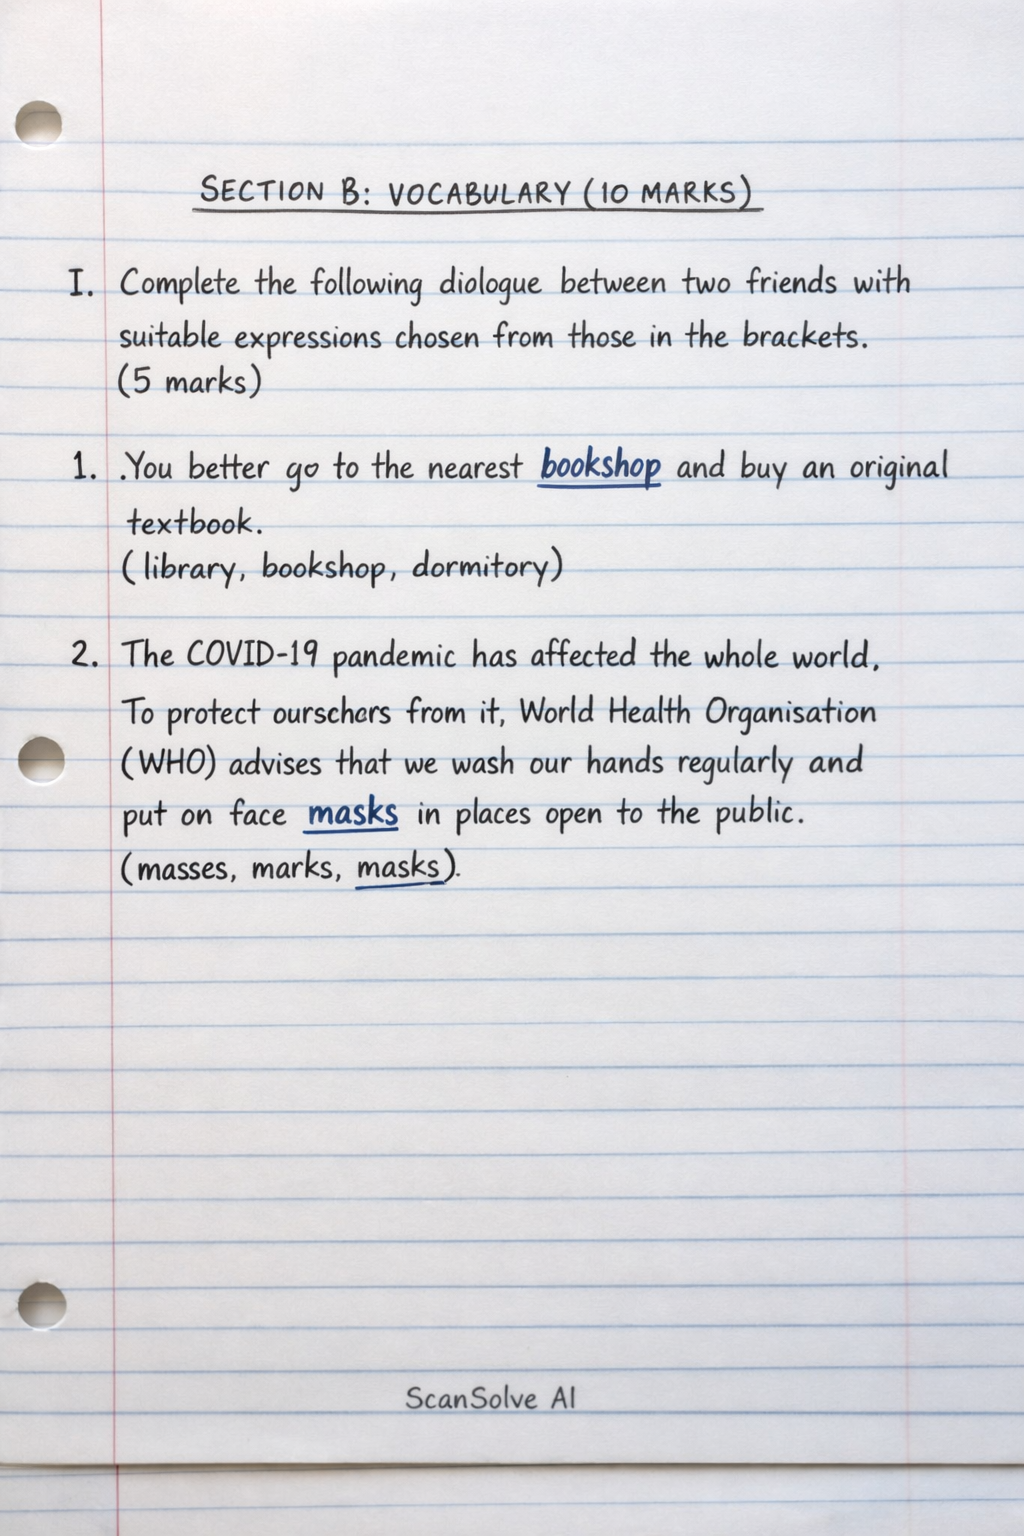 SECTION B: VOCABULARY (10 MARKS)
I. Complete the following diologue between two friends with
suitable expressions chosen from those in the brackets.
(5 marks)
1. .You better go to the nearest bookshop and buy an original
textbook.
(library, bookshop, dormitory)
2. The COVID-19 pandemic has affected the whole world.
To protect ourschers from it, World Health Organisation
(WHO) advises that we wash our hands regularly and
put on face masks in places open to the public.
(masses, marks, masks).
ScanSolve AI